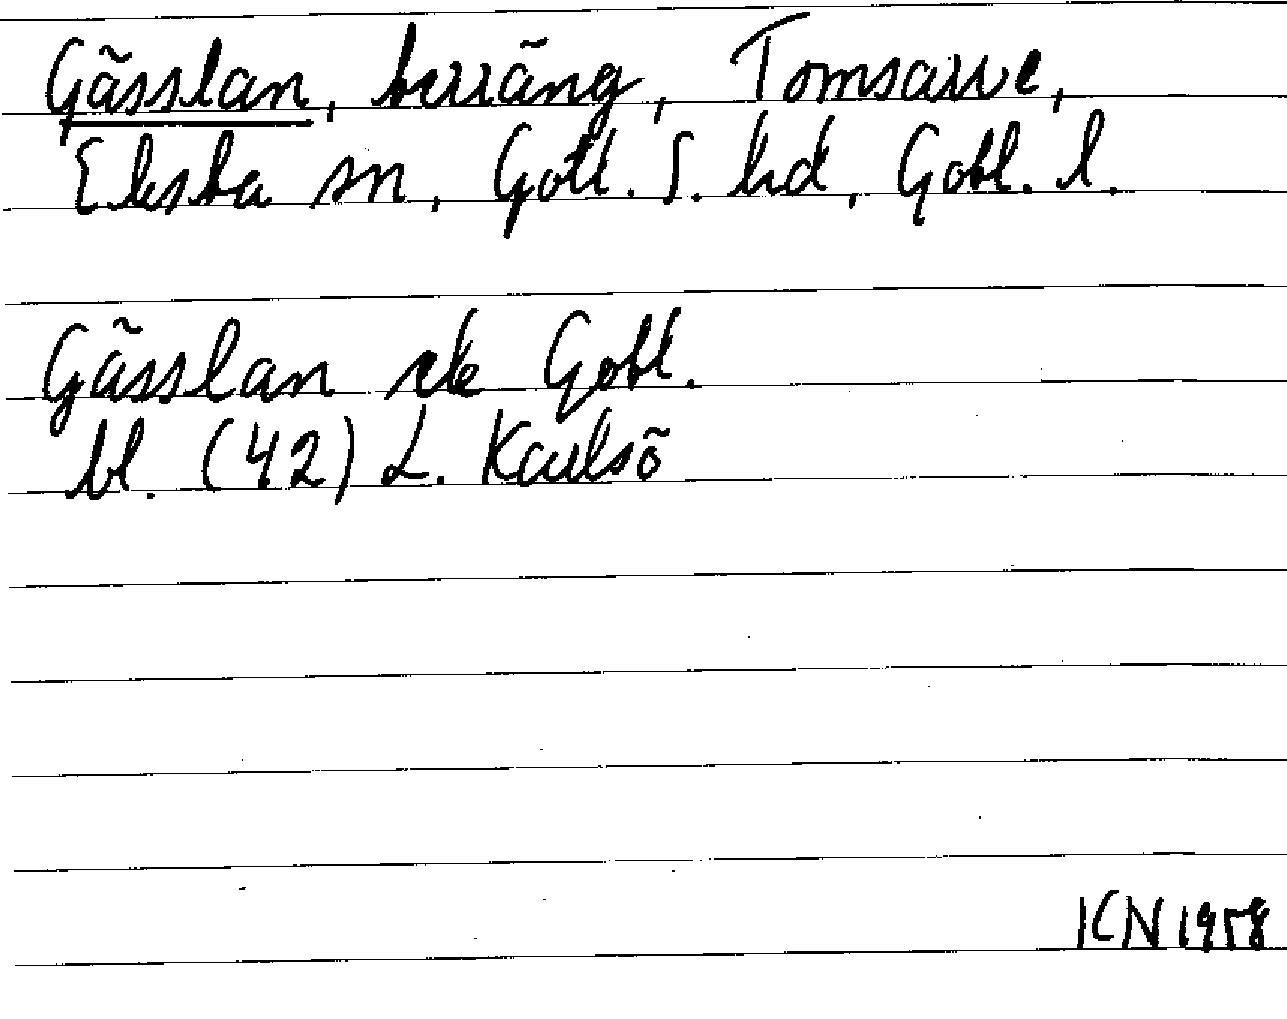 Gässlan, terräng, Tomsarve,
Eksta sn, Gotl. S. hd, Gotl. l.
Gässlan ek Gotl.
bl. (42) L. Karlsö
ICN 1958